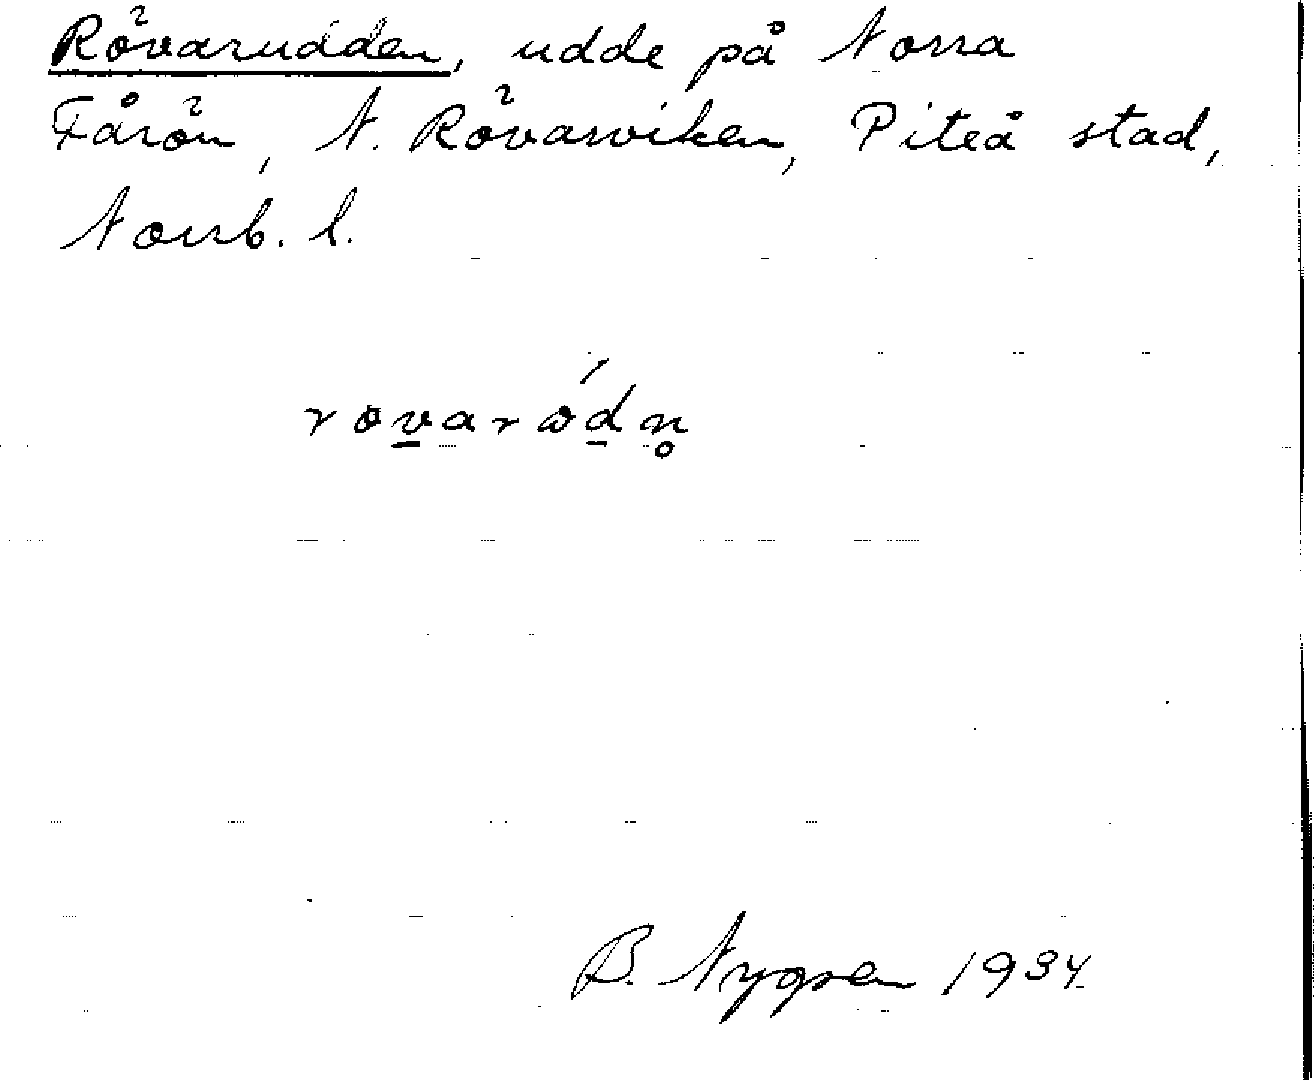 Rövarudden, udde på Norra
Fårön, N. Rövarviken, Piteå stad,
Norrb. l.
rovarɷ́dn̥
B. Nygren 1934